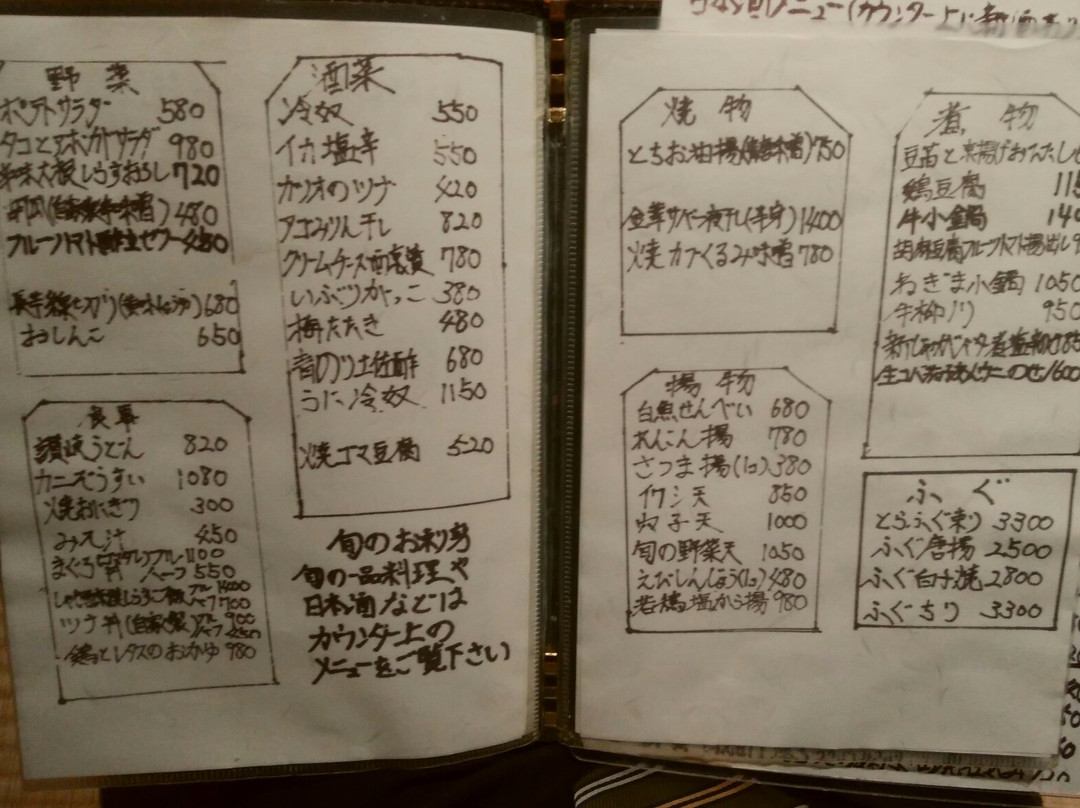 野菜
ポテトサラダ 580
タコとアボカドサラダ 980
辛味大根しらすおろし 720
480
フルーツトマト 480
680
おしんこ 650
食事
讃岐うどん 820
カニぞうすい 1080
焼おにぎり 300
みそ汁 450
まぐろ丼 フル 1100
ハーフ 550
フル 1400
ハーフ 700
ツナ丼(自家製) フル 900
ハーフ 450
鶏とレタスのおかゆ 980
酒菜
冷奴 550
イカ塩辛 550
カツオのツナ 420
アゴみりん干し 820
クリームチーズ西京漬 780
いぶりがっこ 380
梅たたき 480
土佐酢 680
うに冷奴 1150
焼ゴマ豆腐 520
旬のお刺身
旬の一品料理や
日本酒などは
カウンター上の
メニューをご覧下さい
メニュー(カウンター上に
焼物
とちお油揚 750
金華サバ一夜干し(半身) 1400
焼カブくるみ味噌 780
揚物
白魚せんべい 680
れんこん揚 780
さつま揚(1コ) 380
イワシ天 850
1000
旬の野菜天 1050
えびしんじょう(1コ) 480
若鶏塩から揚 980
煮物
豆苗と
鶏豆腐
牛小鍋
胡麻豆腐フルーツトマト揚出し
ねぎま小鍋 1050
950
ふぐ
とらふぐ刺り 3300
ふぐ唐揚 2500
ふぐ白子焼 2800
ふぐちり 3300